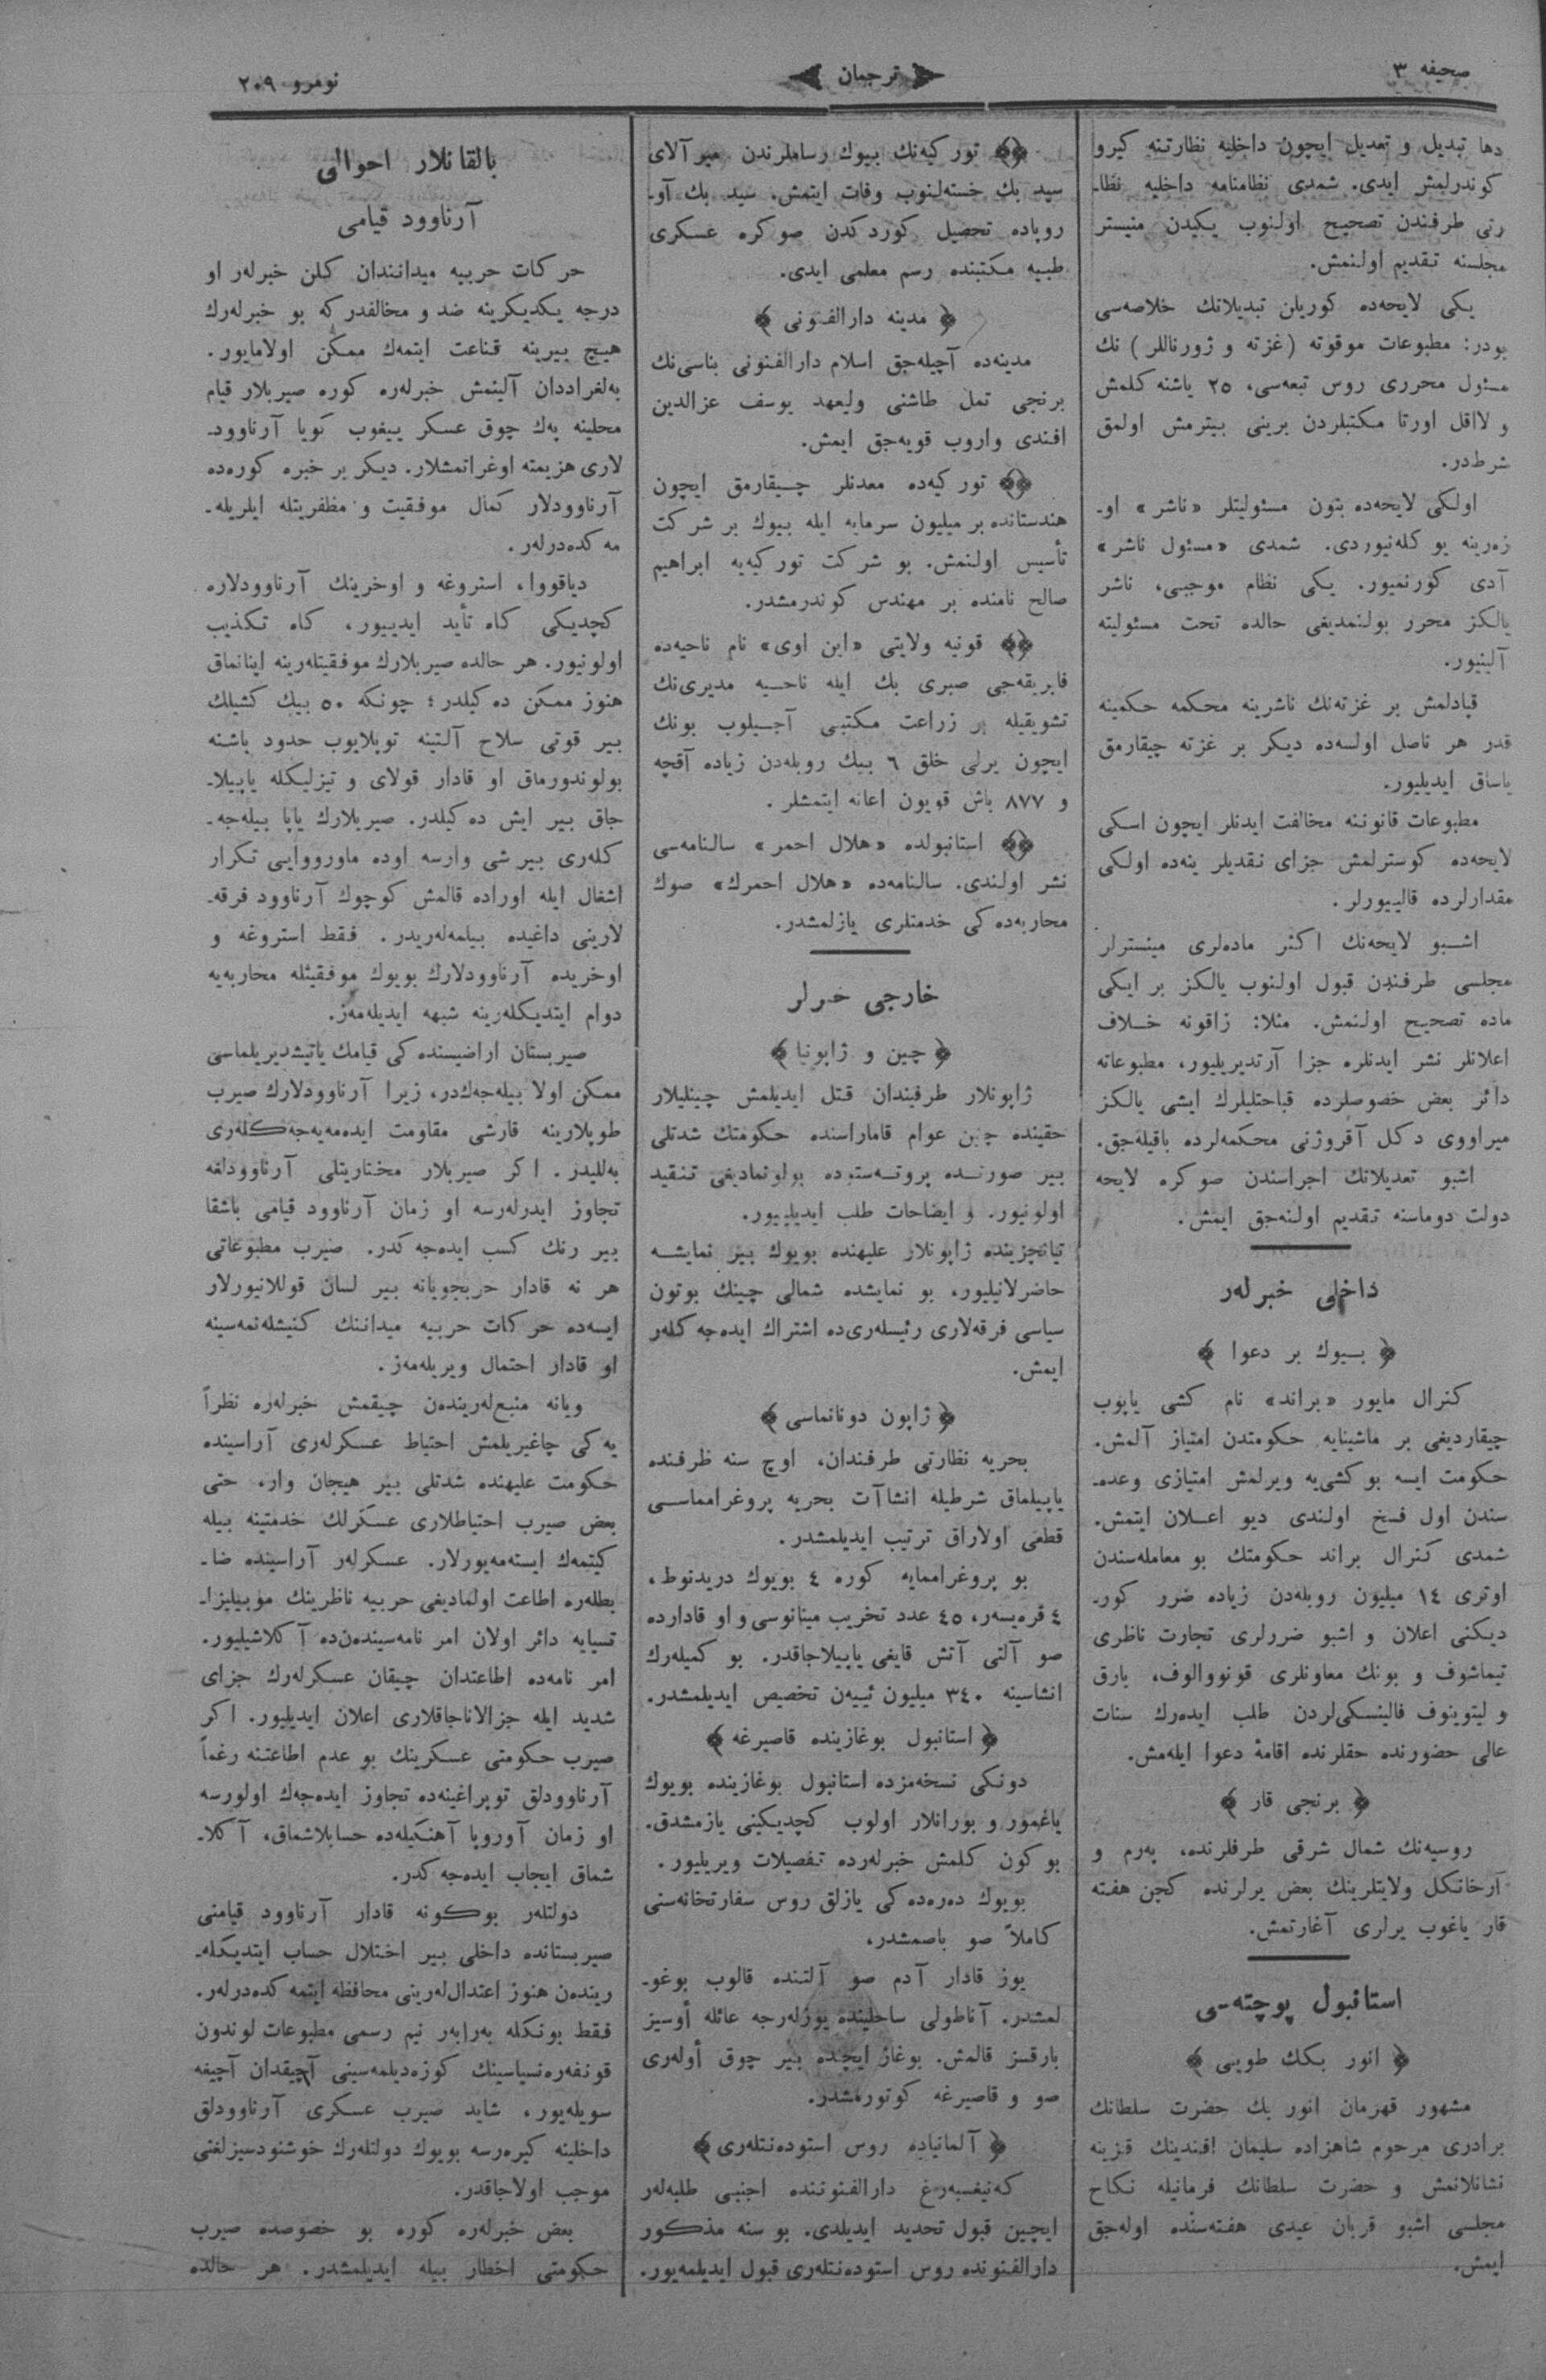 صحیفه ٣
ترجمان
نومرو ٢٠٩
دها تبدیل و تعدیل ایچون داخلیه نظارتنه کیرو
کوندرلمش ایدی. شمدی نظامنامه داخلیه نظا-
رتی طرفندن تصحیح اولنوب یکیدن منیستر
مجلسنه تقدیم اولنمش.
یکی لایحه‌ده کوریلن تبدیلاتك خلاصه‌سی
بودر: مطبوعات موقوته (غزته و ژورناللر) نك
مسئول محرری روس تبعه‌سی، ٢٥ یاشنه کلمش
و لااقل اورتا مکتبلردن برینی بیترمش اولمق
شرطدر.
اولکی لایحه‌ده بتون مسئولیتلر «ناشر» او-
زه‌رینه یوکله‌نیوردی. شمدی «مسئول ناشر»
آدی کورنمیور. یکی نظام موجبی، ناشر
یالکز محرر بولنمدیغی حالده تحت مسئولیته
آلینیور.
قپادلمش بر غزته‌نك ناشرینه محکمه حکمینه
قدر هر ناصل اولسه‌ده دیکر بر غزته چیقارمق
یاساق ایدیلیور.
مطبوعات قانوننه مخالفت ایدنلر ایچون اسکی
لایحه‌ده کوسترلمش جزای نقدیلر ینه‌ده اولکی
مقدارلرده قالییورلر.
اشبو لایحه‌نك اکثر ماده‌لری مینسترلر
مجلسی طرفندن قبول اولنوب یالکز بر ایکی
ماده تصحیح اولنمش. مثلا: زاقونه خلاف
اعلانلر نشر ایدنلره جزا آرتدیریلیور، مطبوعاته
دائر بعض خصوصلرده قباحتلیلرك ایشی یالکز
میراووی دکل آقروژنی محکمه‌لرده باقیله‌جق.
اشبو تعدیلاتك اجراسندن صوکره لایحه
دولت دوماسنه تقدیم اولنه‌جق ایمش.
داخلی خبرلەر
﴿ بیوك بر دعوا ﴾
کنرال مایور «براند» نام کشی یاپوب
چیقاردیغی بر ماشینایه حکومتدن امتیاز آلمش.
حکومت ایسه بو کشی‌یه ویرلمش امتیازی وعده-
سندن اول فسخ اولندی دیو اعلان ایتمش.
شمدی کنرال براند حکومتك بو معامله‌سندن
اوتری ١٤ میلیون روبله‌دن زیاده ضرر کور-
دیکنی اعلان و اشبو ضررلری تجارت ناظری
تیماشوف و بونك معاونلری قونووالوف، بارق
و لیتوینوف فالینسکی‌لردن طلب ایده‌رك سنات
عالی حضورنده حقلرنده اقامهٔ دعوا ایله‌مش.
﴿ برنجی قار ﴾
روسیه‌نك شمال شرقی طرفلرنده، پەرم و
آرخانکل ولایتلرینك بعض یرلرنده کچن هفته
قار یاغوب یرلری آغارتمش.
استانبول پوچته‌سی
﴿ انور بکك طویی ﴾
مشهور قهرمان انور بك حضرت سلطانك
برادری مرحوم شاهزاده سلیمان افندینك قزینه
نشانلانمش و حضرت سلطانك فرمانیله نکاح
مجلسی اشبو قربان عیدی هفته‌سنده اوله‌جق
ایمش.
﴿﴾ تورکیه‌نك بیوك رساملرندن میرآلای
سید بك خسته‌لنوب وفات ایتمش. سید بك آو-
روپاده تحصیل کوردکدن صوکره عسکری
طبیه مکتبنده رسم معلمی ایدی.
﴿ مدینه دارالفنونی ﴾
مدینه‌ده آچیله‌جق اسلام دارالفنونی بناسی‌نك
برنجی تمل طاشنی ولیعهد یوسف عزالدین
افندی واروب قویه‌جق ایمش.
﴿﴾ تورکیه‌ده معدنلر چیقارمق ایچون
هندستانده بر میلیون سرمایه ایله بیوك بر شرکت
تأسیس اولنمش. بو شرکت تورکیه‌یه ابراهیم
صالح نامنده بر مهندس کوندرمشدر.
﴿﴾ قونیه ولایتی «این اوی» نام ناحیه‌ده
فابریقه‌جی صبری بك ایله ناحیه مدیری‌نك
تشویقیله بر زراعت مکتبی آچیلوب بونك
ایچون یرلی خلق ٦ بیك روبله‌دن زیاده آقچه
و ٨٧٧ باش قویون اعانه ایتمشلر.
﴿﴾ استانبولده «هلال احمر» سالنامه‌سی
نشر اولندی. سالنامه‌ده «هلال احمرك» صوك
محاربه‌ده‌کی خدمتلری یازلمشدر.
خارجی خبرلر
﴿ چین و ژاپونیا ﴾
ژاپونلار طرفیندان قتل ایدیلمش چینلیلار
حقینده چین عوام قاماراسنده حکومتك شدتلی
بیر صورتده پروته‌ستوده بولونمادیغی تنقید
اولونیور. و ایضاحات طلب ایدیلییور.
تیانچزینده ژاپونلار علیهنده بویوك بیر نمایشه
حاضرلانیلیور، بو نمایشده شمالی چینك بوتون
سیاسی فرقه‌لاری رئیسله‌ری‌ده اشتراك ایده‌جه‌کلەر
ایمش.
﴿ ژاپون دونانماسی ﴾
بحریه نظارتی طرفندان، اوچ سنه ظرفنده
یاپیلماق شرطیله انشاآت بحریه پروغرامماسی
قطعی اولاراق ترتیب ایدیلمشدر.
بو پروغراممایه کوره ٤ بویوك دریدنوط،
٤ قره‌یسەر، ٤٥ عدد تخریب مینانوسی و او قادارده
صو آلتی آتش قایغی یاپیلاجاقدر. بو کمیله‌رك
انشاسینه ٣٤٠ میلیون ئییه‌ن تخصیص ایدیلمشدر.
﴿ استانبول بوغازینده قاصیرغه ﴾
دونکی نسخه‌مزده استانبول بوغازینده بویوك
یاغمور و بورانلار اولوب کچدیکینی یازمشدق.
بو کون کلمش خبرلەرده تفصیلات ویریلیور.
بویوك دەره‌ده‌کی یازلق روس سفارتخانه‌سنی
کاملاً صو باصمشدر،
یوز قادار آدم صو آلتنده قالوب بوغو-
لمشدر. آناطولی ساحلینده یوزلەرجه عائله أوسیز
بارقسز قالمش. بوغاز ایچنده بیر چوق أولەری
صو و قاصیرغه کوتورمشدر.
﴿ آلمانیاده روس استودەنتلەری ﴾
کەنیغسبەرغ دارالفنوننده اجنبی طلبه‌لەر
ایچین قبول تحدید ایدیلدی. بو سنه مذکور
دارالفنونده روس استودەنتلەری قبول ایدیلمه‌یور.
بالقانلار احوالی
آرناوود قیامی
حرکات حربیه میداننداان کلن خبرلەر او
درجه یکدیکرینه ضد و مخالفدرکه بو خبرلەرك
هیچ بیرینه قناعت ایتمه‌ك ممکن اولامایور.
به‌لغراددان آلینمش خبرلەره کوره صیربلار قیام
محلینه پەك چوق عسکر ییغوب کویا آرناوود-
لاری هزیمته اوغراتمشلار. دیکر بر خبره کوره‌ده
آرناوودلار کمال موفقیت و مظفریتله ایلریله-
مه‌کده‌درلەر.
دیاقووا، استروغه و اوخرینك آرناوودلاره
کچدیکی کاه تأید ایدییور، کاه تکذیب
اولونیور. هر حالده صیربلارك موفقیتلەرینه اینانماق
هنوز ممکن ده‌کیلدر؛ چونکه ٥٠ بیك کشیلك
بیر قوتی سلاح آلتینه توپلایوب حدود باشنه
بولوندورماق او قادار قولای و تیزلیکله یاپیلا-
جاق بیر ایش ده‌کیلدر. صیربلارك یاپا بیله‌جه-
کلەری بیر شی وارسه اوده ماوروواایی تکرار
اشغال ایله اوراده قالمش کوچوك آرناوود فرقه-
لارینی داغیده بیلمه‌لەریدر. فقط استروغه و
اوخریده آرناوودلارك بویوك موفقیتله محاربه‌یه
دوام ایتدیکلەرینه شبهه ایدیله‌مەز.
صیربستان اراضیسنده‌کی قیامك یاتیشدیریلماسی
ممکن اولا بیله‌جه‌کدر، زیرا آرناوودلارك صیرب
طوپلارینه قارشی مقاومت ایده‌مه‌یه‌جه‌کلەری
به‌للیدر. اکر صیربلار مختاریتلی آرناوودلغه
تجاوز ایدرلەرسه او زمان آرناوود قیامی باشقا
بیر رنك کسب ایده‌جه‌کدر. صیرب مطبوعاتی
هر نه قادار حربجویانه بیر لسان قوللانیورلار
ایسه‌ده حرکات حربیه میداننك کنیشله‌نمه‌سینه
او قادار احتمال ویریله‌مەز.
ویانه منبع‌لەریندەن چیقمش خبرلەره نظراً
یه‌کی چاغیریلمش احتیاط عسکرلەری آراسینده
حکومت علیهنده شدتلی بیر هیجان وار، حتی
بعض صیرب احتیاطلاری عسکرلك خدمتینه بیله
کیتمه‌ك ایسته‌مه‌یورلار. عسکرلەر آراسینده ضا-
بطلەره اطاعت اولمادیغی حربیه ناظرینك موبیلیزا-
تسیایه دائر اولان امر نامه‌سیندەن‌ده آکلاشیلیور.
امر نامه‌ده اطاعتدان چیقان عسکرلەرك جزای
شدید ایله جزالاناجاقلاری اعلان ایدیلیور. اکر
صیرب حکومتی عسکرینك بو عدم اطاعتنه رغماً
آرناوودلق توپراغینه‌ده تجاوز ایده‌جه‌ك اولورسه
او زمان آوروپا آهنکیله‌ده حسابلاشماق، آکلا-
شماق ایجاب ایده‌جه‌کدر.
دولتلەر بوکونه قادار آرناوود قیامنی
صیربستانده داخلی بیر اختلال حساب ایتدیکلە-
ریندەن هنوز اعتدال‌لەرینی محافظه ایتمه‌کده‌درلەر.
فقط بونکله بەرابەر نیم رسمی مطبوعات لوندون
قونفەرەنسیاسینك کوزەدیلمه‌سینی آچیقدان آچیغه
سویله‌یور، شاید صیرب عسکری آرناوودلق
داخلینه کیرەرسه بویوك دولتلەرك خوشنودسیزلغنی
موجب اولاجاقدر.
بعض خبرلەره کوره بو خصوصده صیرب
حکومتی اخطار بیله ایدیلمشدر. هر حالده